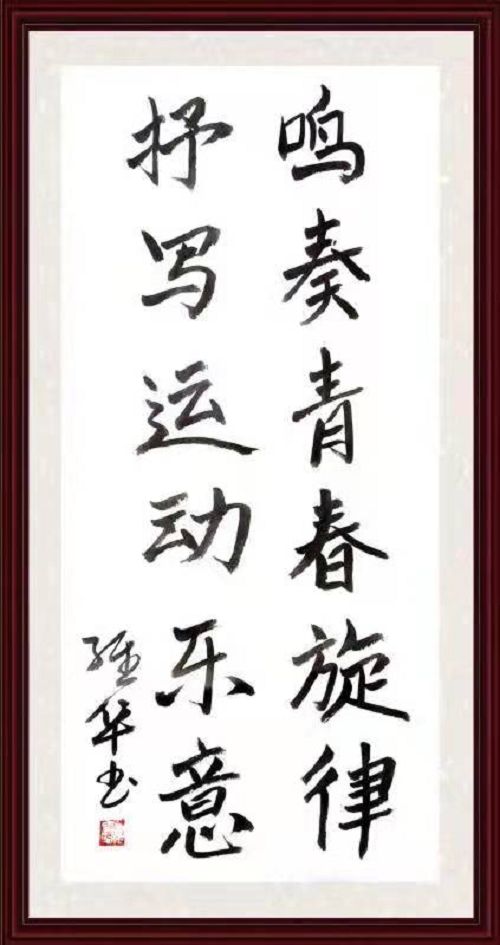 鸣奏青春旋律
抒写运动乐意
维华书